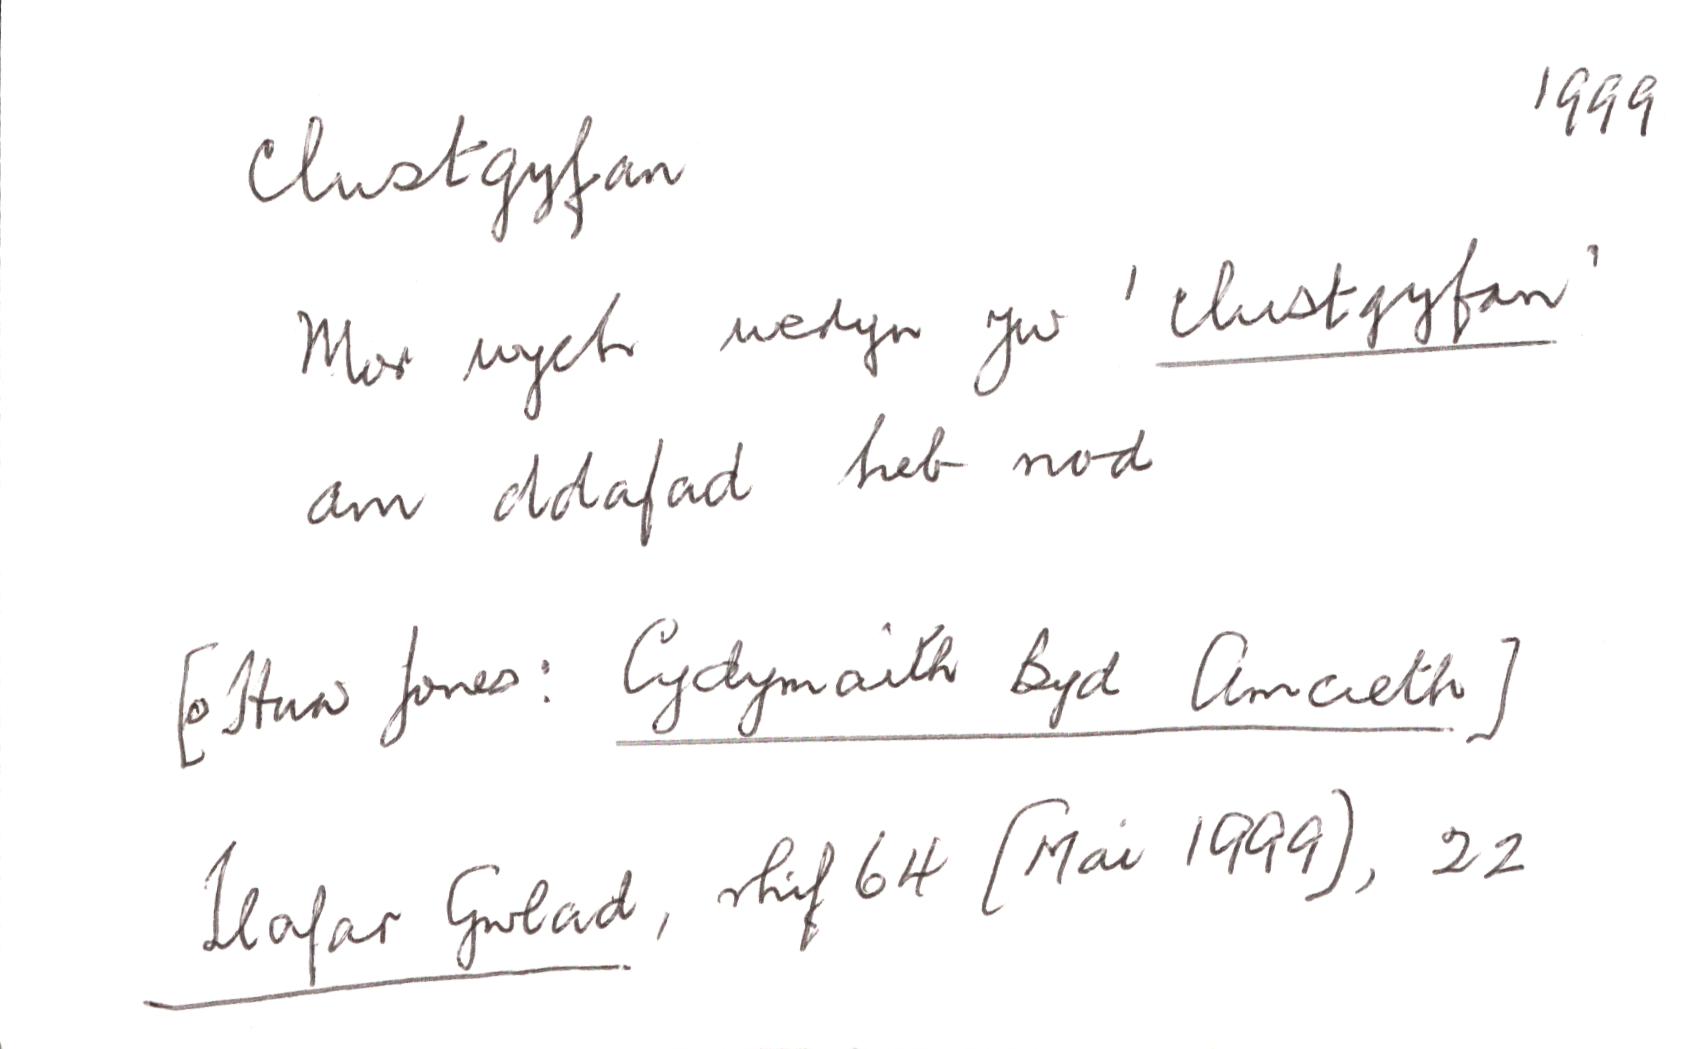 1999
Clustgyfan
Mor wych wedyn yw 'clustgyfan'
am ddafad heb nod
[o Huw Jones: Cydymaith Byd Amaeth]
Llafar Gwlad, rhif 64 (Mai 1999), 22